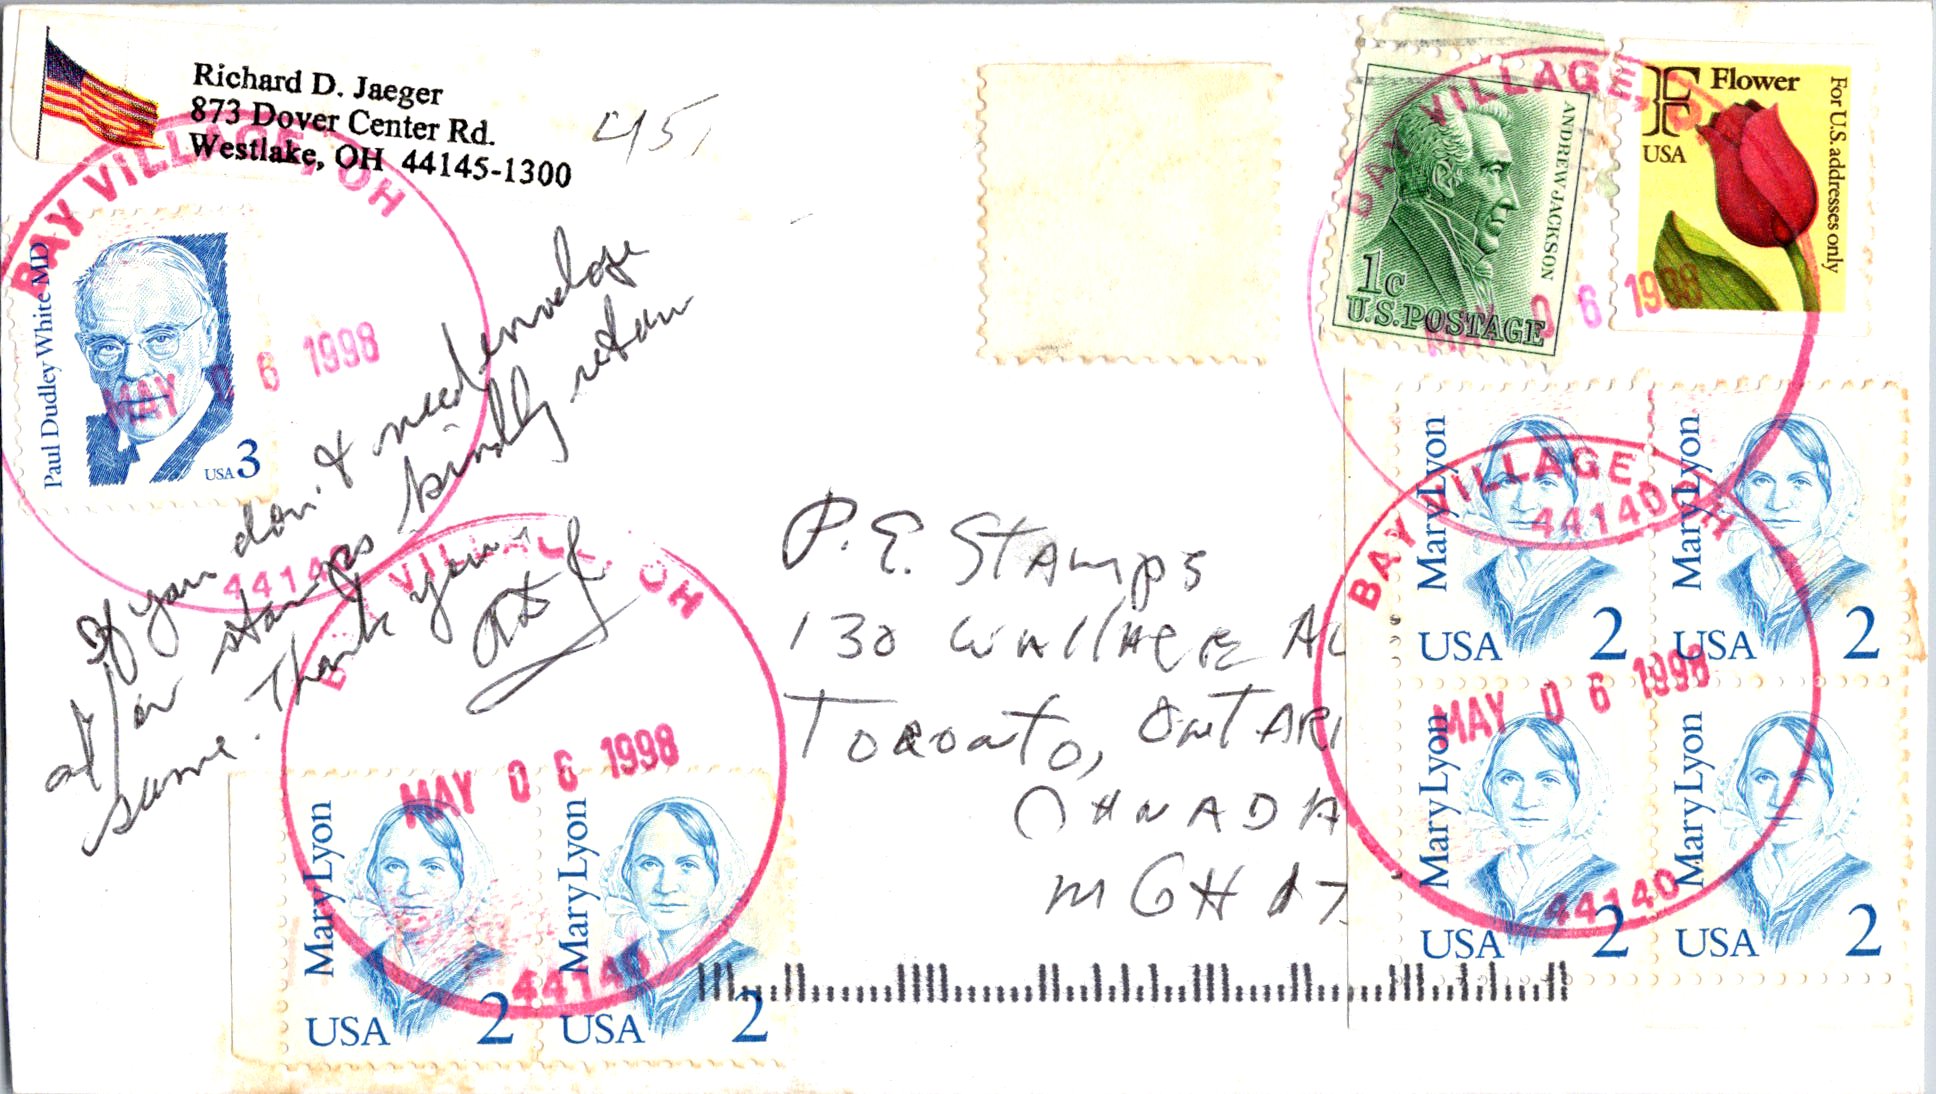 Richard D. Jaeger
873 Dover Center Rd.
Westlake, OH 44145-1300
451
BAY VILLAGE, OH
MAY 06 1998
44140
Paul Dudley White MD
USA 3
If you don't need envelope
&/or stamps kindly return
same. Thank you.
ANDREW JACKSON
1c
U.S. POSTAGE
F Flower
USA
For U.S. addresses only
BAY VILLAGE,
MAY 06 1998
44140
P.E. Stamps
130 Wallace
Toronto, ONTARI
CANADA
M6H
Mary Lyon
USA 2
Mary Lyon
USA 2
Mary Lyon
USA 2
Mary Lyon
USA 2
BAY VILLAGE, OH
MAY 06 1998
44140
VILLAGE, OH
MAY 06 1998
44140
Mary Lyon
USA 2
Mary Lyon
USA 2